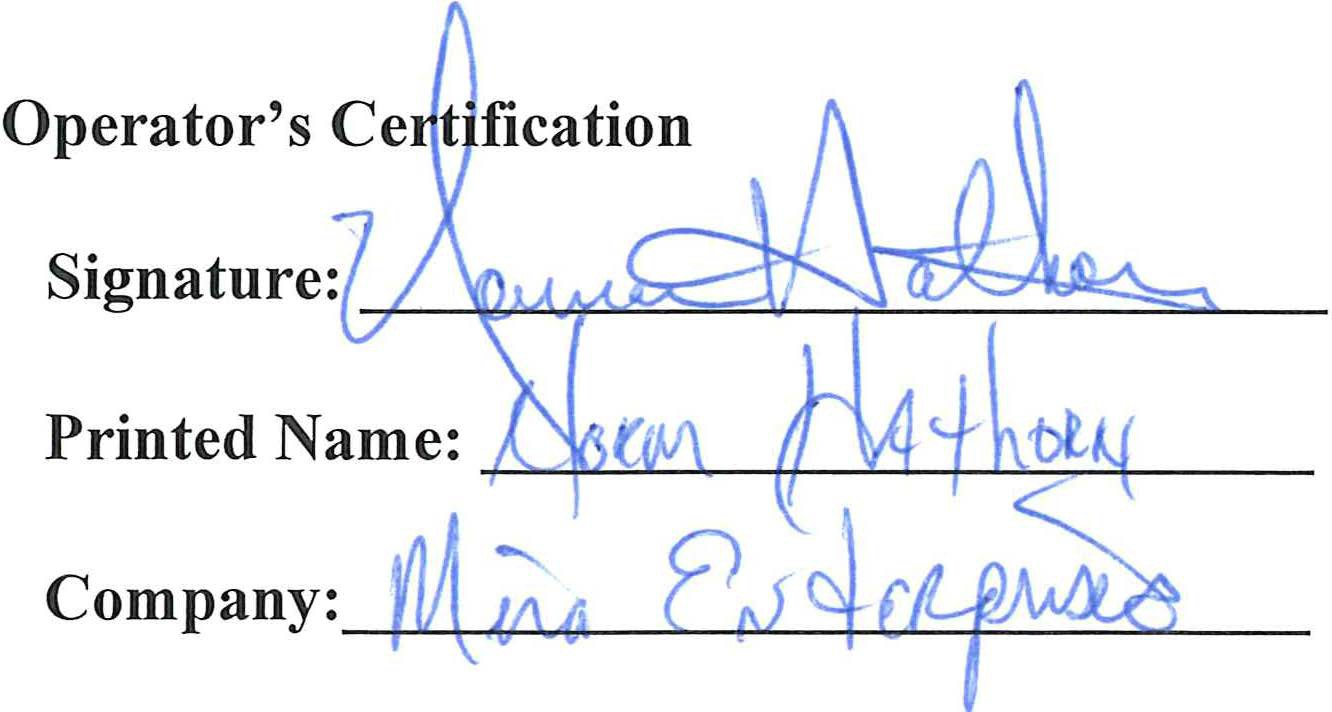 Operator's Certification
Signature: Norm Hathorn
Printed Name: Norm Hathorn
Company: Mira Enterprises